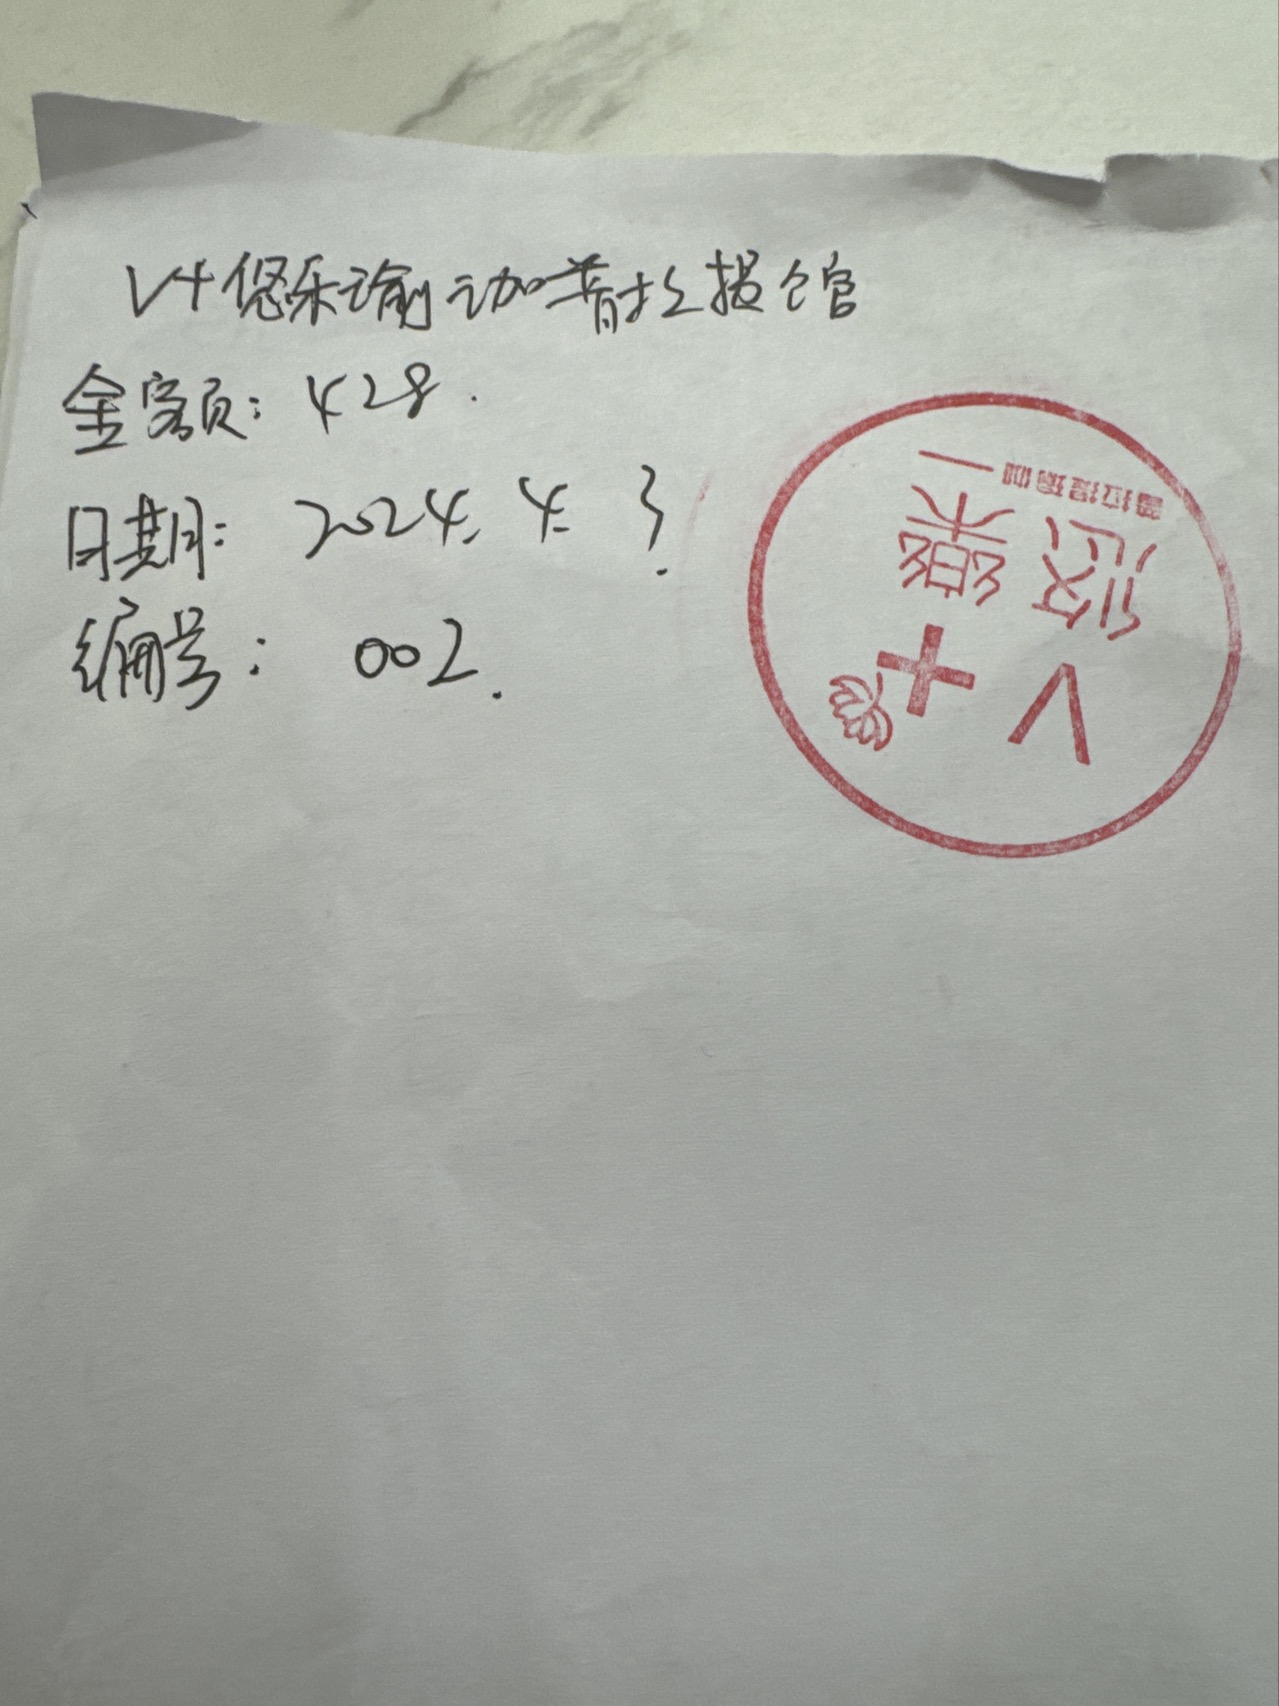 V+悠乐瑜伽普拉提馆
金额: 428.
日期: 2024.4.3.
编号: 002.
V+
悠樂
普拉提瑜伽一